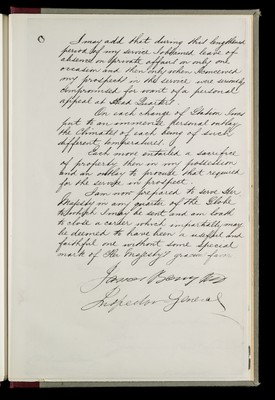 I may add that during this lengthened
period of my service I obtained leave of
absence on private affairs on only one
occasion and then only when I conceived
my prospects in the service were seriously
compromised for want of a personal
appeal at Head Quarters.
On each change of Station I was
put to an immense personal outlay
the Climates of each being of such
different temperatures.
Each move entailed a sacrifice
of property then in my possession
and an outlay to provide that required
for the service in prospect.
I am now prepared to serve Her
Majesty in any quarter of the Globe
to which I may be sent and am loath
to close a career which impartially may
be deemed to have been a useful and
faithful one without some special
mark of Her Majesty's gracious favor
James Barry MD
Inspector General